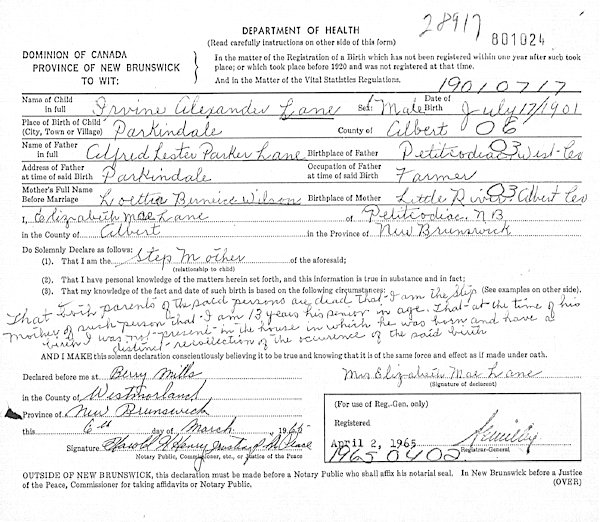 28917
801024
DEPARTMENT OF HEALTH
(Read carefully instructions on other side of this form)
DOMINION OF CANADA
PROVINCE OF NEW BRUNSWICK
TO WIT:
In the matter of the Registration of a Birth which has not been registered within one year after such took
place; or which took place before 1920 and was not registered at that time.
And in the Matter of the Vital Statistics Regulations.
19010717
Name of Child in full Irvine Alexander Lane Sex: Male Date of Birth July 17/1901
Place of Birth of Child (City, Town or Village) Parkindale County of Albert 06
Name of Father in full Alfred Lester Parker Lane Birthplace of Father Petitcodiac 03 West. Co
Address of Father at time of said Birth Parkindale Occupation of Father at time of said Birth Farmer
Mother's Full Name Before Marriage Loettia Berneice Wilson Birthplace of Mother Little River 03 Albert Co
I, Elizabeth Mae Lane of Petitcodiac, N.B.
in the County of Albert in the Province of New Brunswick
Do Solemnly Declare as follows:
(1). That I am the Step Mother of the aforesaid;
(relationship to child)
(2). That I have personal knowledge of the matters herein set forth, and this information is true in substance and in fact;
(3). That my knowledge of the fact and date of such birth is based on the following circumstances: (See examples on other side).
That both parents of the said persons are dead that I am the step
mother of such person that I am 13 years his senior in age. That at the time of his
birth I was not present in the house in which he was born and have a
distinct recollection of the occurence of the said birth
AND I MAKE this solemn declaration conscientiously believing it to be true and knowing that it is of the same force and effect as if made under oath.
Declared before me at Berry Mills
Mrs Elizabeth Mae Lane
(Signature of declarant)
in the County of Westmorland
Province of New Brunswick
this 6th day of March 1965
Signature Harold Henry Justice of the Peace
Notary Public, Commissioner, etc., or Justice of the Peace
(For use of Reg.-Gen. only)
Registered
April 2, 1965
19650402
Registrar-General
OUTSIDE OF NEW BRUNSWICK, this declaration must be made before a Notary Public who shall affix his notarial seal. In New Brunswick before a Justice
of the Peace, Commissioner for taking affidavits or Notary Public.
(OVER)